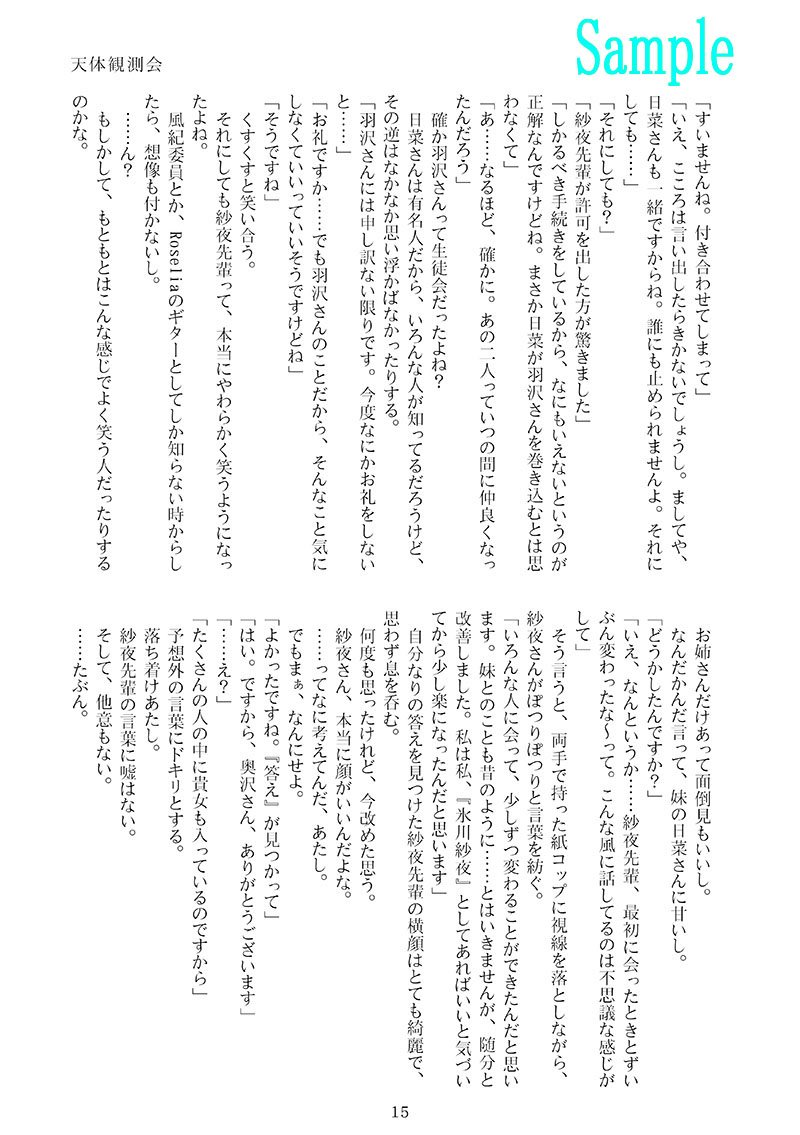 Sample
天体観測会
「すいませんね。付き合わせてしまって」
「いえ、こころは言い出したらきかないでしょうし。ましてや、
日菜さんも一緒ですからね。誰にも止められませんよ。それに
しても……」
「それにしても?」
「紗夜先輩が許可を出した方が驚きました」
「しかるべき手続きをしているから、なにもいえないというのが
正解なんですけどね。まさか日菜が羽沢さんを巻き込むとは思
わなくて」
「あ……なるほど、確かに。あの二人っていつの間に仲良くなっ
たんだろう」
確か羽沢さんって生徒会だったよね?
日菜さんは有名人だから、いろんな人が知ってるだろうけど、
その逆はなかなか思い浮かばなかったりする。
「羽沢さんには申し訳ない限りです。今度なにかお礼をしない
と……」
「お礼ですか……でも羽沢さんのことだから、そんなこと気に
しなくていいっていいそうですけどね」
「そうですね」
くすくすと笑い合う。
それにしても紗夜先輩って、本当にやわらかく笑うようになっ
たよね。
風紀委員とか、Roseliaのギターとしてしか知らない時からし
たら、想像も付かないし。
……ん?
もしかして、もともとはこんな感じでよく笑う人だったりする
のかな。
お姉さんだけあって面倒見もいいし。
なんだかんだ言って、妹の日菜さんに甘いし。
「どうかしたんですか?」
「いえ、なんというか……紗夜先輩、最初に会ったときとずい
ぶん変わったな～って。こんな風に話してるのは不思議な感じが
して」
そう言うと、両手で持った紙コップに視線を落としながら、
紗夜さんがぽつりぽつりと言葉を紡ぐ。
「いろんな人に会って、少しずつ変わることができたんだと思い
ます。妹とのことも昔のように……とはいきませんが、随分と
改善しました。私は私、『氷川紗夜』としてあればいいと気づい
てから少し楽になったんだと思います」
自分なりの答えを見つけた紗夜先輩の横顔はとても綺麗で、
思わず息を呑む。
何度も思ったけれど、今改めた思う。
紗夜さん、本当に顔がいいんだよな。
……ってなに考えてんだ、あたし。
でもまぁ、なんにせよ。
「よかったですね。『答え』が見つかって」
「はい。ですから、奥沢さん、ありがとうございます」
「……え?」
「たくさんの人の中に貴女も入っているのですから」
予想外の言葉にドキリとする。
落ち着けあたし。
紗夜先輩の言葉に嘘はない。
そして、他意もない。
……たぶん。
15